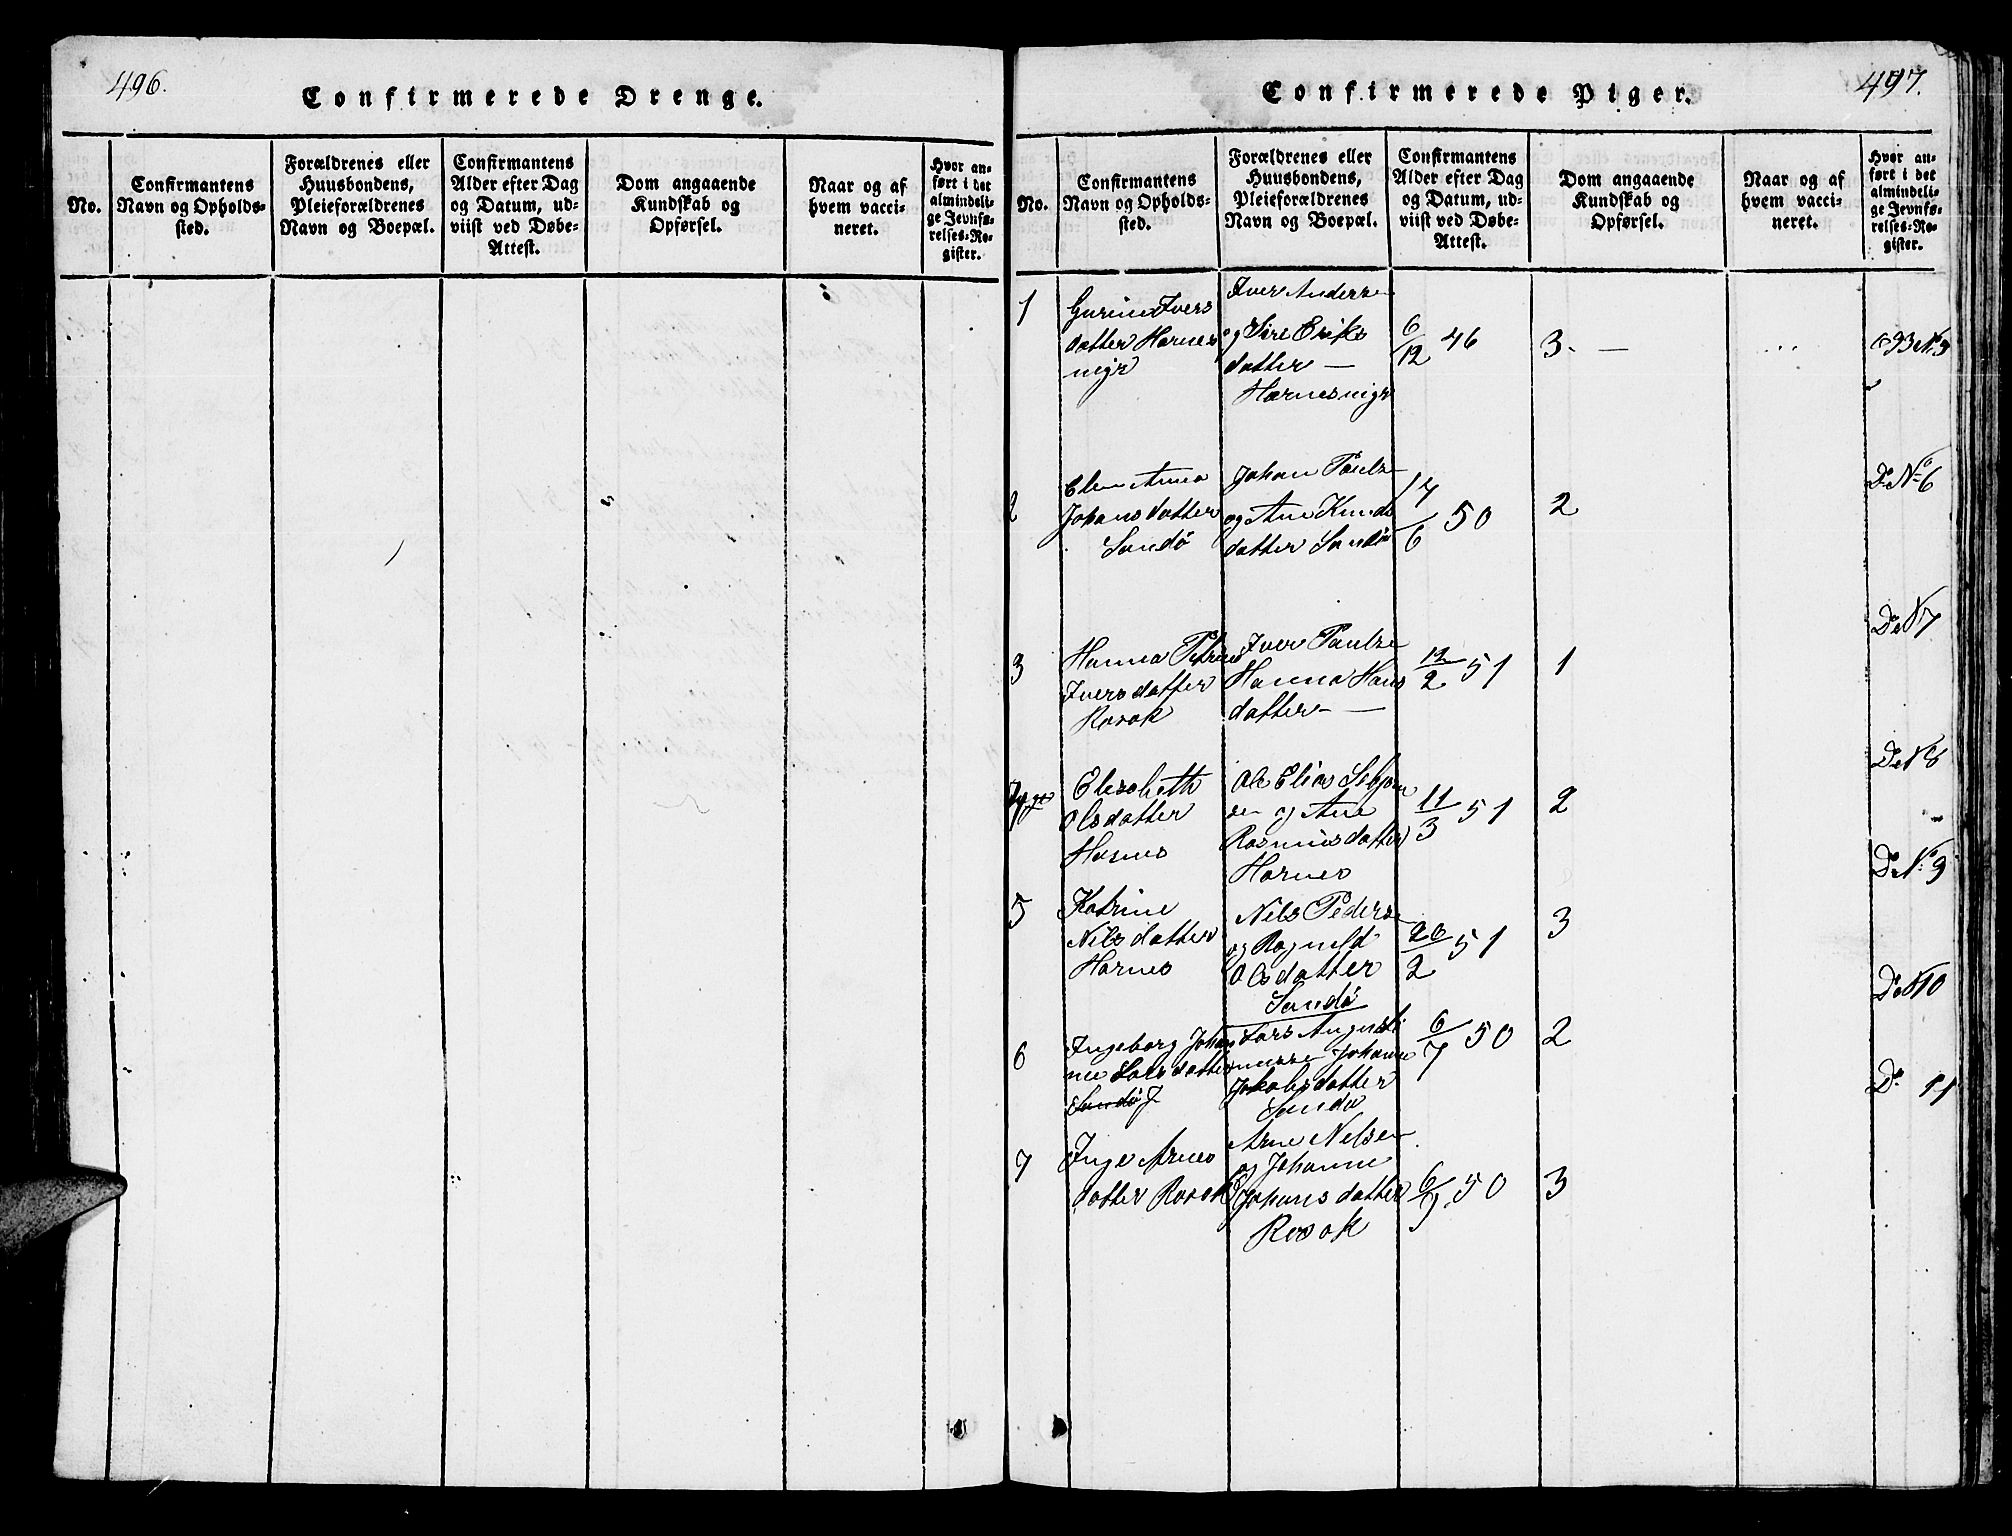 496.
Confirmerede Drenge.
No.
Confirmantens
Navn og Opholds-
sted.
Forældrenes eller
Huusbondens,
Pleieforældrenes
Navn og Boepæl.
Confirmantens
Alder efter Dag
og Datum, ud-
viist ved Døbe-
Attest.
Dom angaaende
Kundskab og
Opførsel.
Naar og af
hvem vacci-
neret.
Hvor an-
ført i det
almindeli-
ge Jevnfø-
relses-Re-
gister.
497.
Confirmerede Piger.
No.
Confirmantens
Navn og Opholds-
sted.
Forældrenes eller
Huusbondens,
Pleieforældrenes
Navn og Boepæl.
Confirmantens
Alder efter Dag
og Datum, ud-
viist ved Døbe-
Attest.
Dom angaaende
Kundskab og
Opførsel.
Naar og af
hvem vacci-
neret.
Hvor an-
ført i det
almindeli-
ge Jevnfø-
relses-Re-
gister.
1
Gurine Ivers
datter Harnes
Iver Anderse
og Sire Eriks
datter —
6/12 46
3. —
2
Elen Anna
Johansdatter
Sandø
Johan Paulse
og Ane Knuds
datter Sandø
17/6 50
2
Do No 6
3
Hanna Petrine
Iversdatter
Rosok
Iver Paulse
Hanna Hans
datter —
12/2 51
1
Do N 7
Elesabeth
Olsdatter
Harnes
Ole Elias Sebjørn
sen og Ane
Rasmusdatter
Harnes
11/3 51
2
Do N 8
5
Katrine
Nilsdatter
Harnes
Nels Pederse
og Ragneld
Olsdatter
Sandø
26/2 51
3
Do No 9
6
Ingeborg Johan
ne Larsdatter
Sandø
Lars Augusti
nusse Johanne
Jakobsdatter
Sandø
6/7 50
2
Do N 10
7
Inge Arnes
datter Rosok
Arne Nelsen
og Johanne
Johansdatter
Rosok
6/9 50
3
Do 11